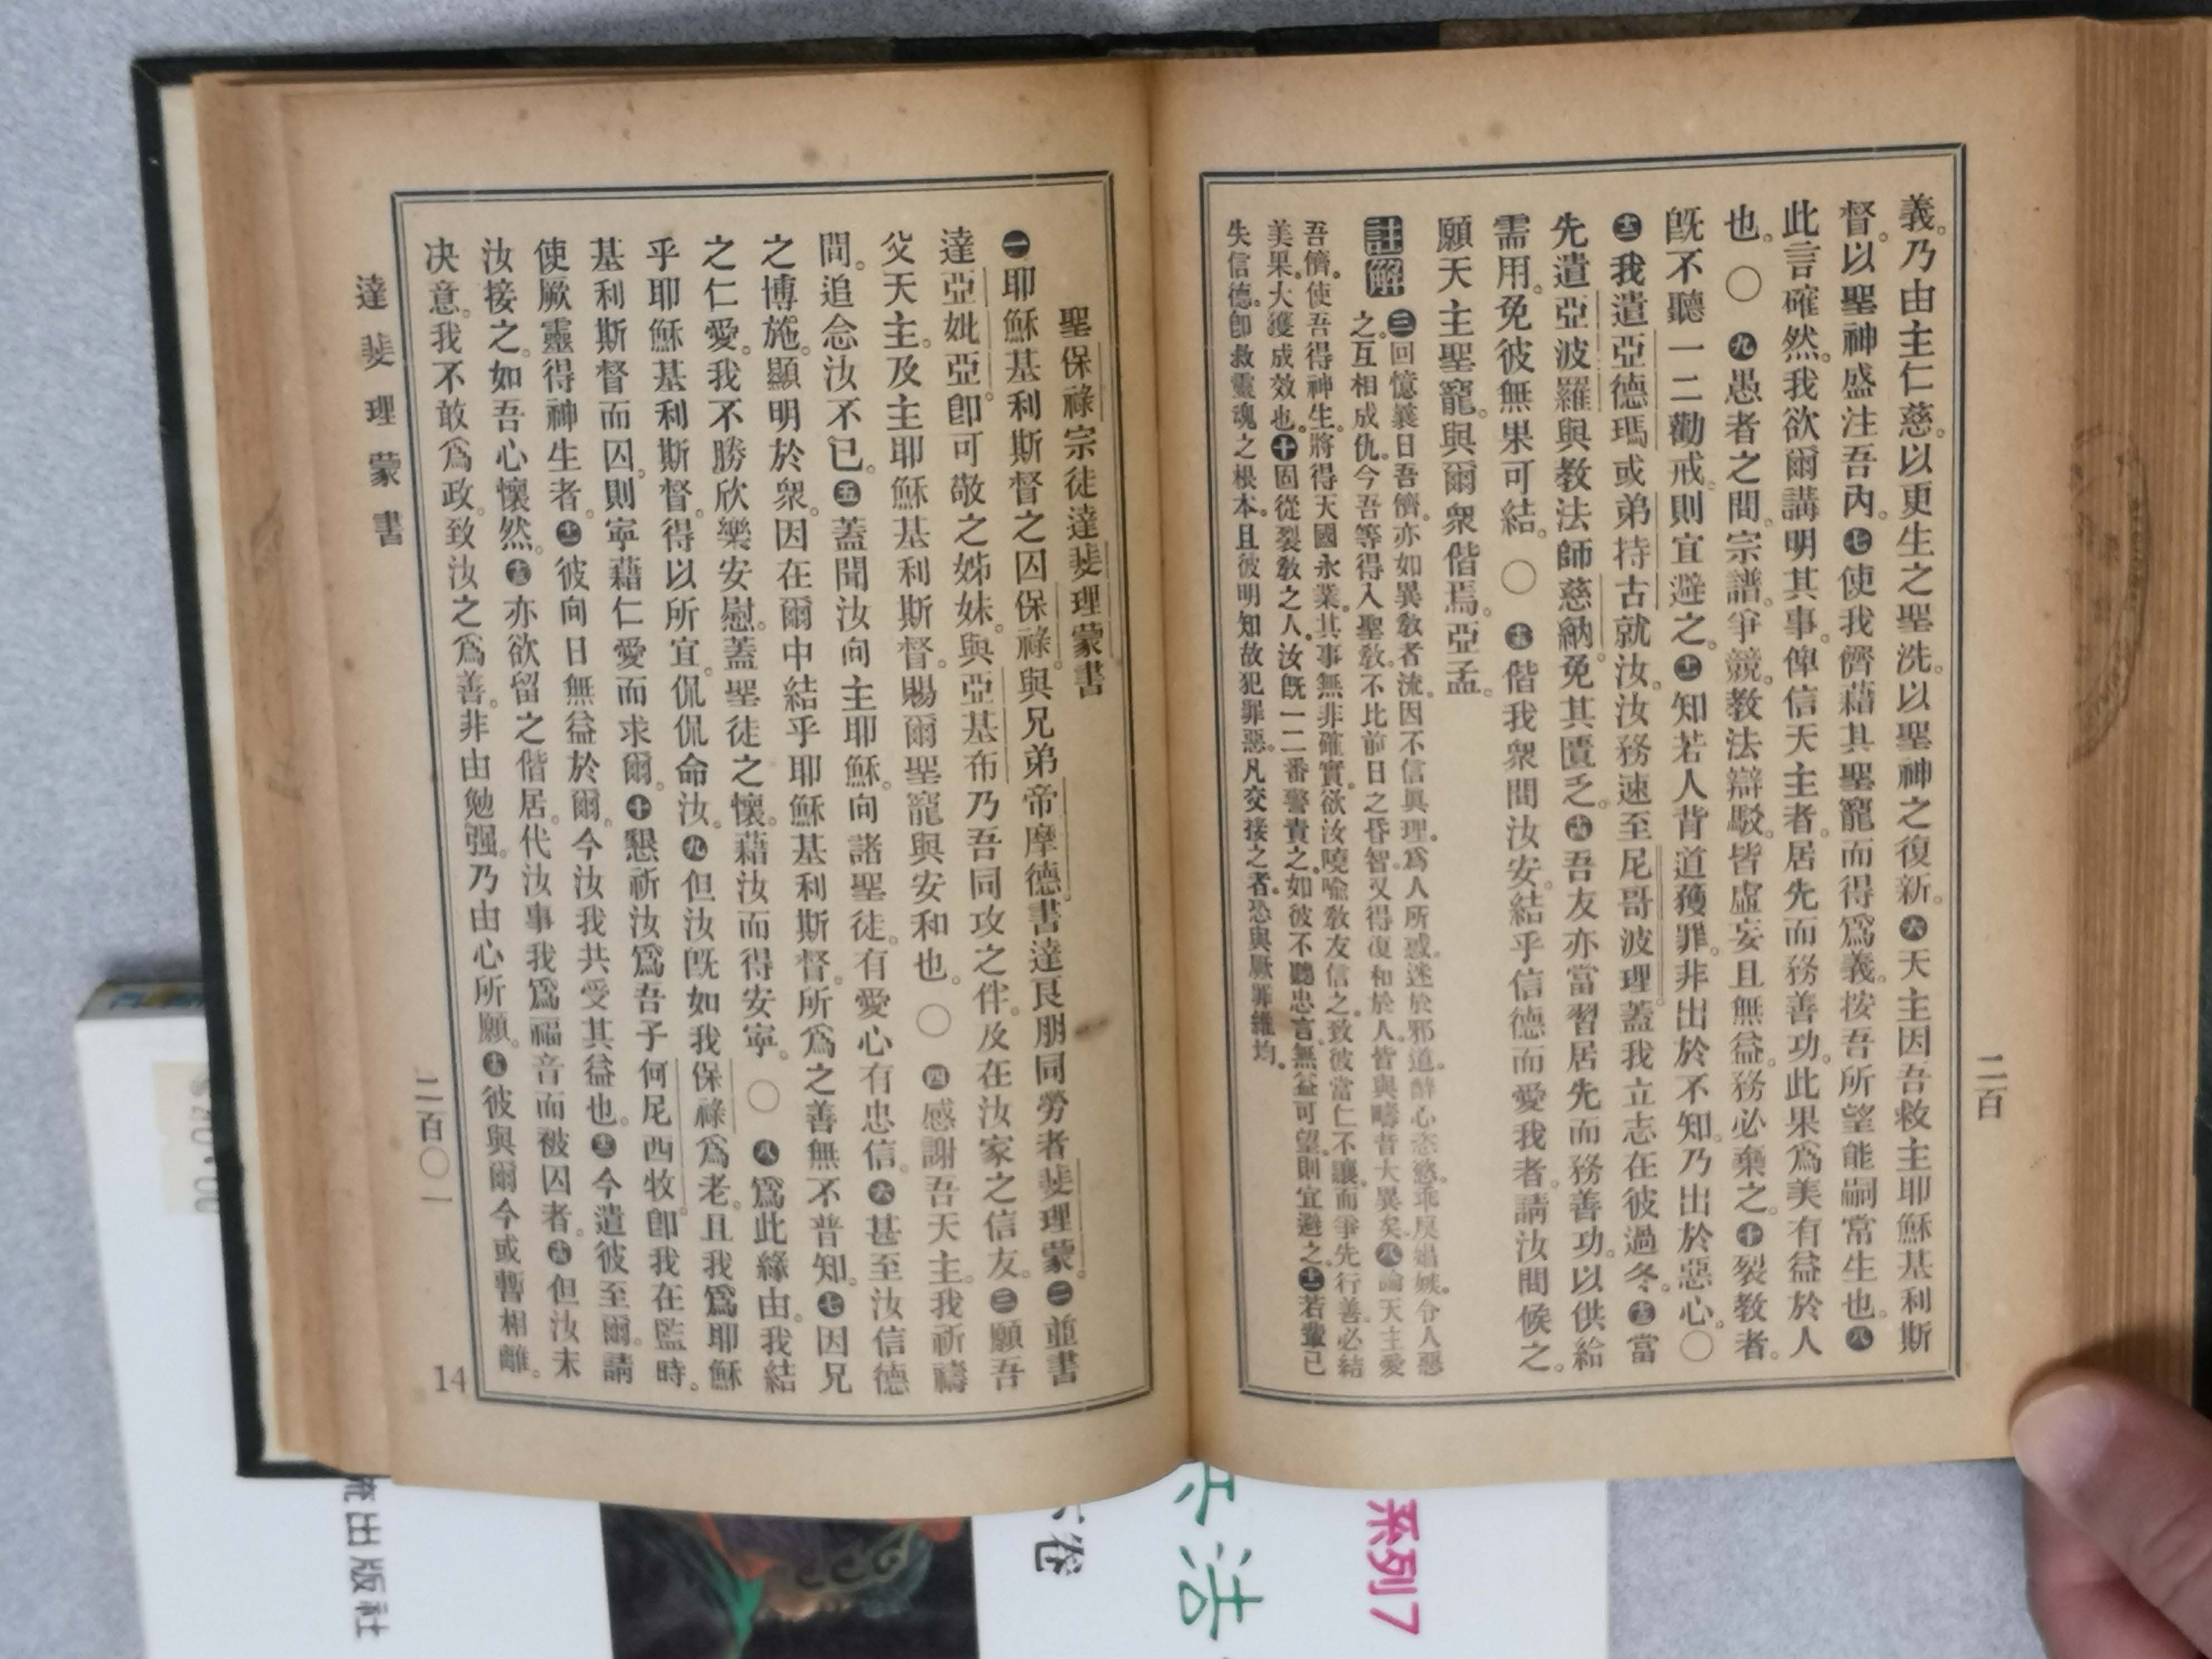 義。乃由主仁慈。以更生之聖洗。以聖神之復新。六天主因吾救主耶穌基利斯
督。以聖神盛注吾內。七使我儕藉其聖寵而得爲義。按吾所望能嗣常生也。八
此言確然。我欲爾講明其事。俾信天主者。居先而務善功。此果爲美有益於人
也。〇九愚者之間。宗譜。爭競。教法辯駁。皆虛妄且無益。務必棄之。十裂教者。
旣不聽一二勸戒。則宜避之。十一知若人背道獲罪。非出於不知。乃出於惡心。〇
十二我遣亞德瑪或弟持古就汝。汝務速至尼哥波理蓋我立志在彼過冬。十三當
先遣亞波羅與教法師慈納。免其匱乏。十四吾友亦當習居先而務善功。以供給
需用。免彼無果可結。〇十五偕我衆間汝安。結乎信德而愛我者。請汝間候之。
願天主聖寵。與爾衆偕焉。亞孟。
註解 三回憶曩日吾儕。亦如異敎者流。因不信眞理。爲人所惑。迷於邪道。醉心恣慾。乖戾娼嫉。令人惡
之。互相成仇。今吾等得入聖敎。不比前日之昏智。又得復和於人。皆與疇昔大異矣。八論天主愛
吾儕。使吾得神生。將得天國永業。其事無非確實。欲汝曉喩敎友信之。致彼當仁不讓。而爭先行善。必結
美果。大獲成效也。十固從裂敎之人。汝旣一二番警責之。如彼不聽忠言。無益可望。則宜避之。十一若輩已
失信德。卽救靈魂之根本。且彼明知故犯罪惡。凡交接之者。恐與厥罪維均。
二百
聖保祿宗徒達斐理蒙書
一耶穌基利斯督之囚保祿。與兄弟帝摩德。書達良朋同勞者斐理蒙。二並書
達亞妣亞。卽可敬之姊妹。與亞基布乃吾同攻之伴。及在汝家之信友。三願吾
父天主。及主耶穌基利斯督。賜爾聖寵與安和也。〇四感謝吾天主。我祈禱
間。追念汝不已。五蓋聞汝向主耶穌。向諸聖徒。有愛心有忠信。六甚至汝信德
之博施。顯明於衆。因在爾中結乎耶穌基利斯督。所爲之善無不普知。七因兄
之仁愛。我不勝欣樂安慰。蓋聖徒之懷。藉汝而得安寧。〇八爲此緣由。我結
乎耶穌基利斯督。得以所宜。侃侃命汝。九但汝旣如我保祿爲老。且我爲耶穌
基利斯督而囚。則寧藉仁愛而求爾。十懇祈汝爲吾子何尼西牧。卽我在監時。
使厥靈得神生者。十一彼向日無益於爾。今汝我共受其益也。十二今遣彼至爾。請
汝接之。如吾心懷然。十三亦欲留之偕居。代汝事我爲福音而被囚者。十四但汝未
决意。我不敢爲政。致汝之爲善。非由勉强。乃由心所願。十五彼與爾今或暫相離。
達斐理蒙書
二百〇一
14
出版社
卷
法
系列7